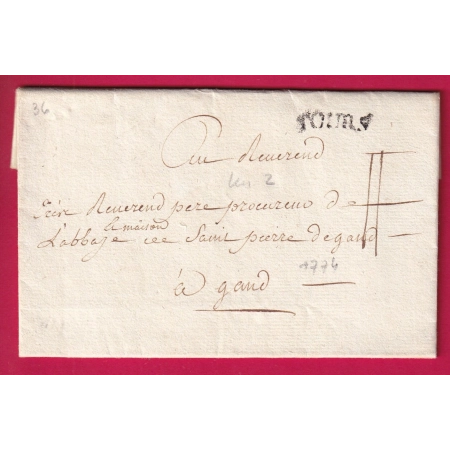 36
TOURS
Au Reverend
Reverend pere procureur de
la maison
L'abbaje de Saint pierre de gand
à gand
1776